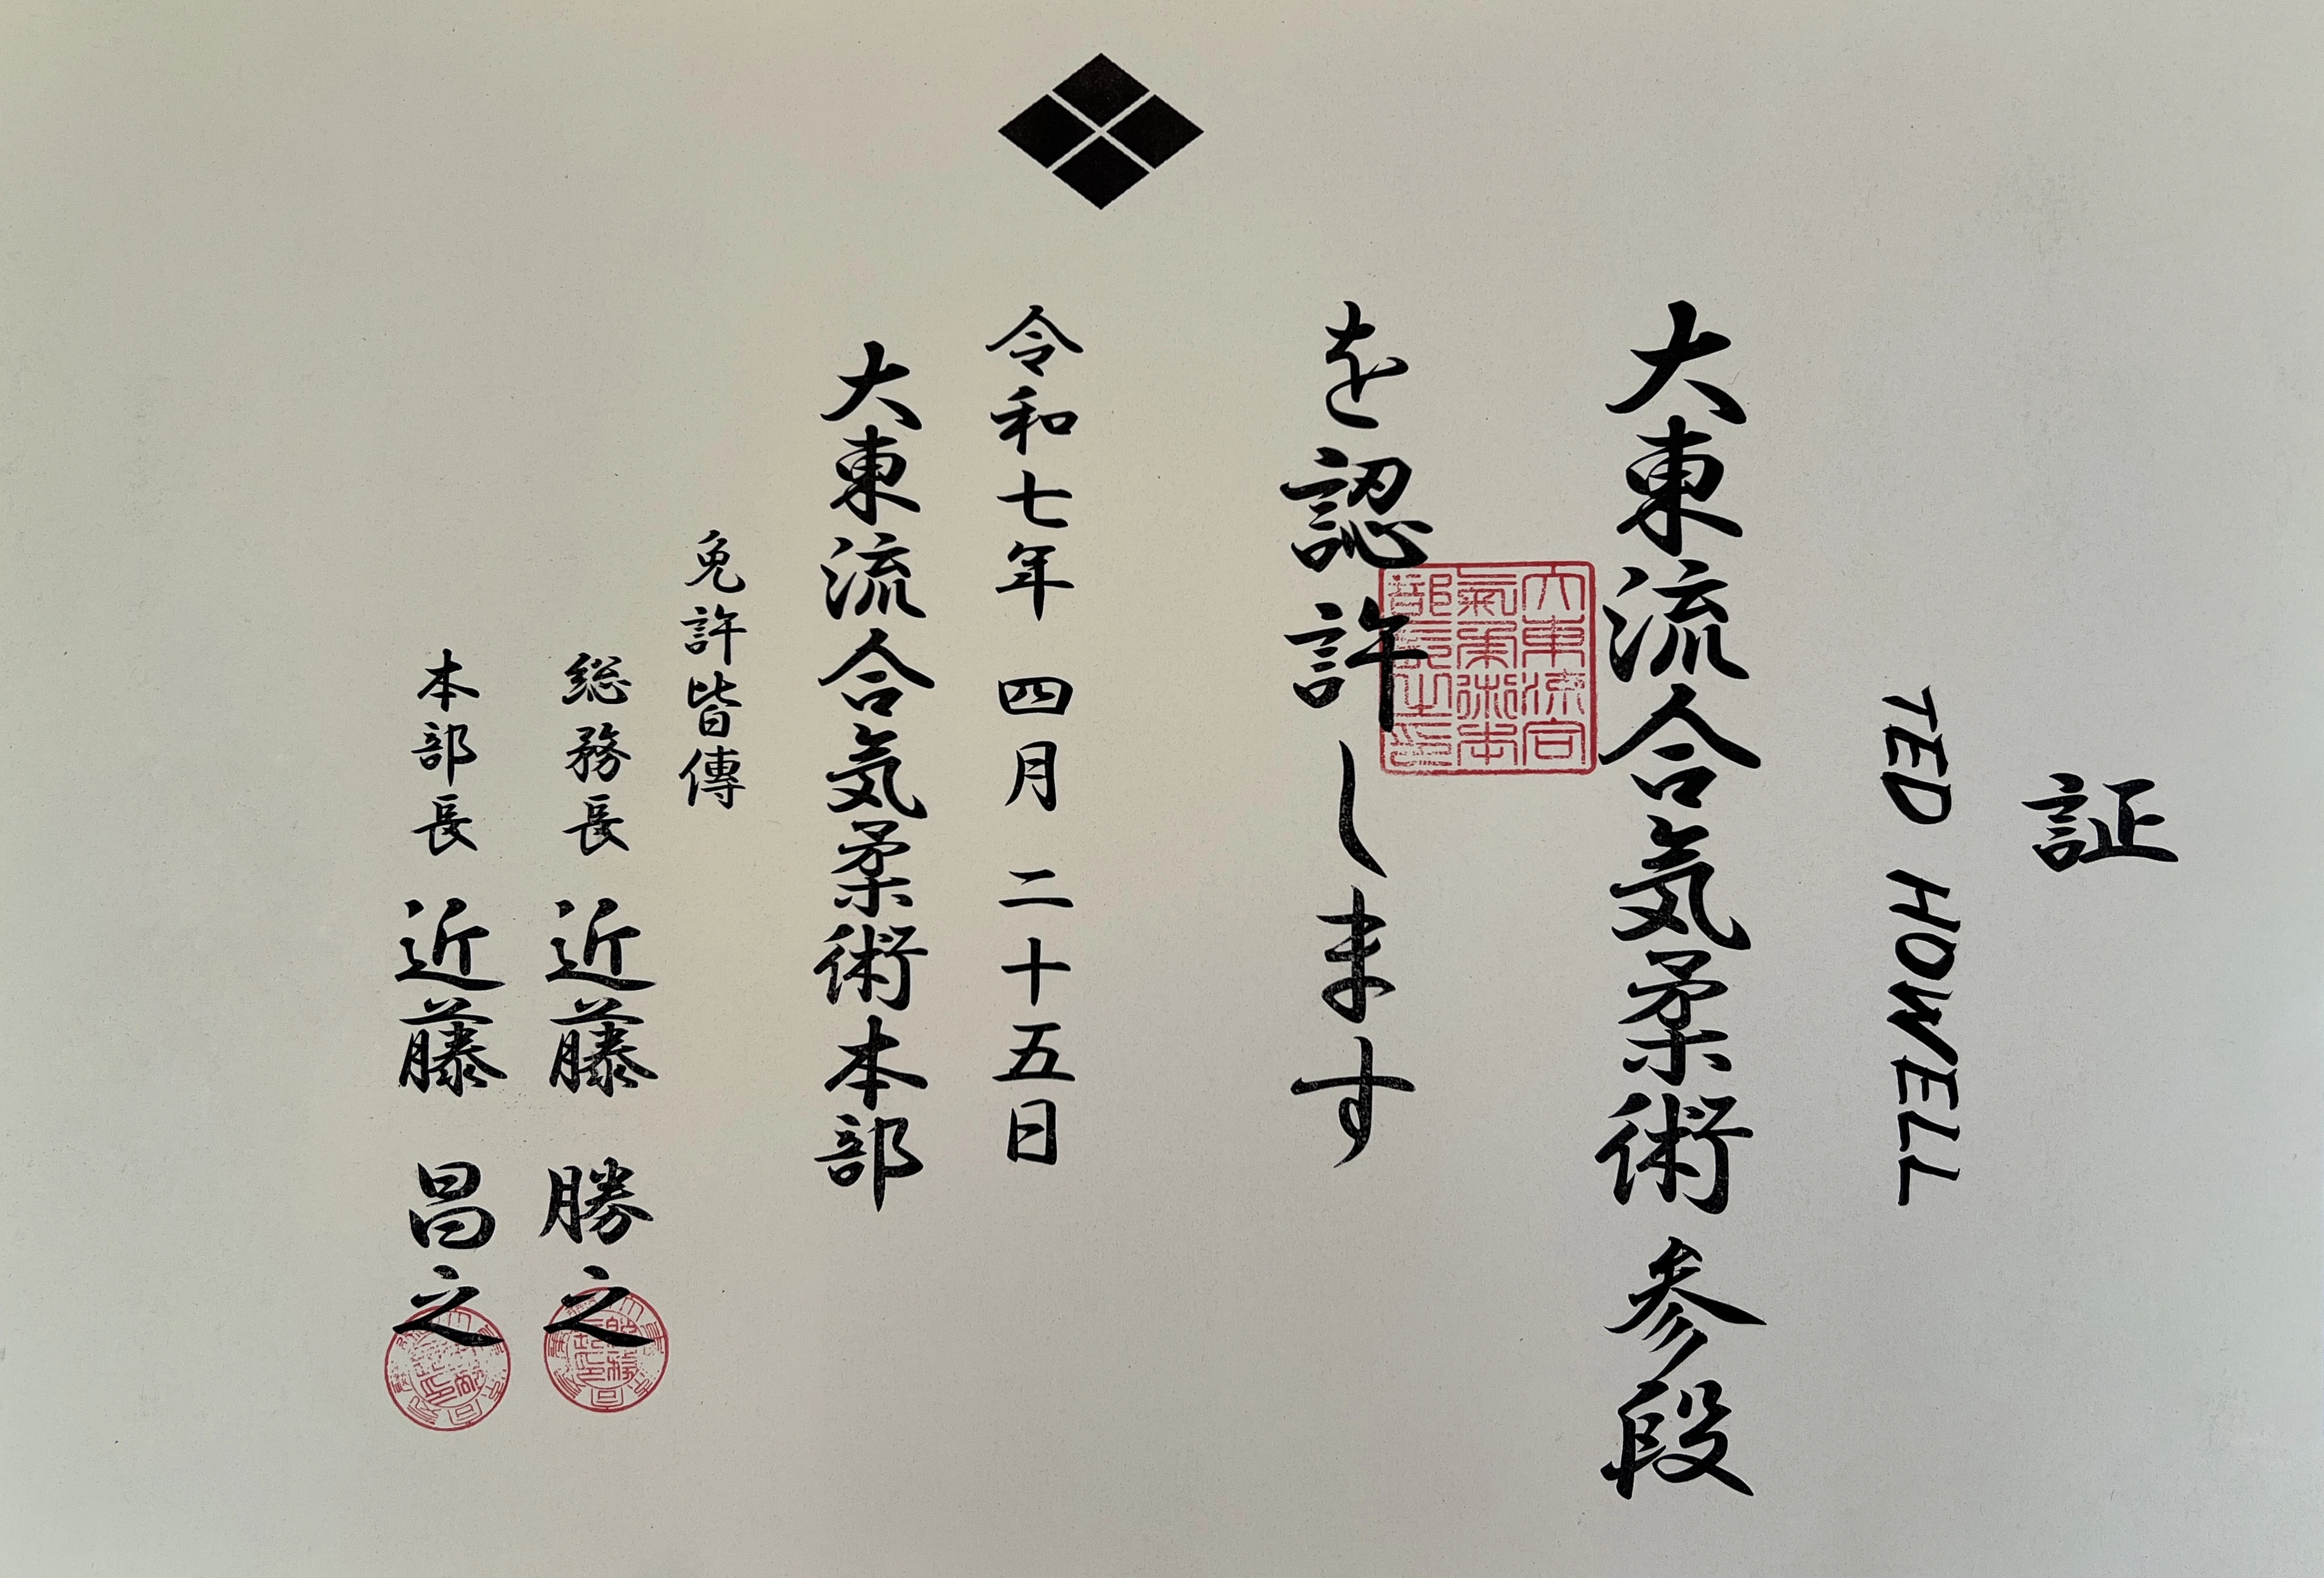 証
TED HOWELL
大東流合気柔術 参段
を認許します
令和七年 四月 二十五日
大東流合気柔術本部
免許皆傳
総務長 近藤 勝之
本部長 近藤 昌之